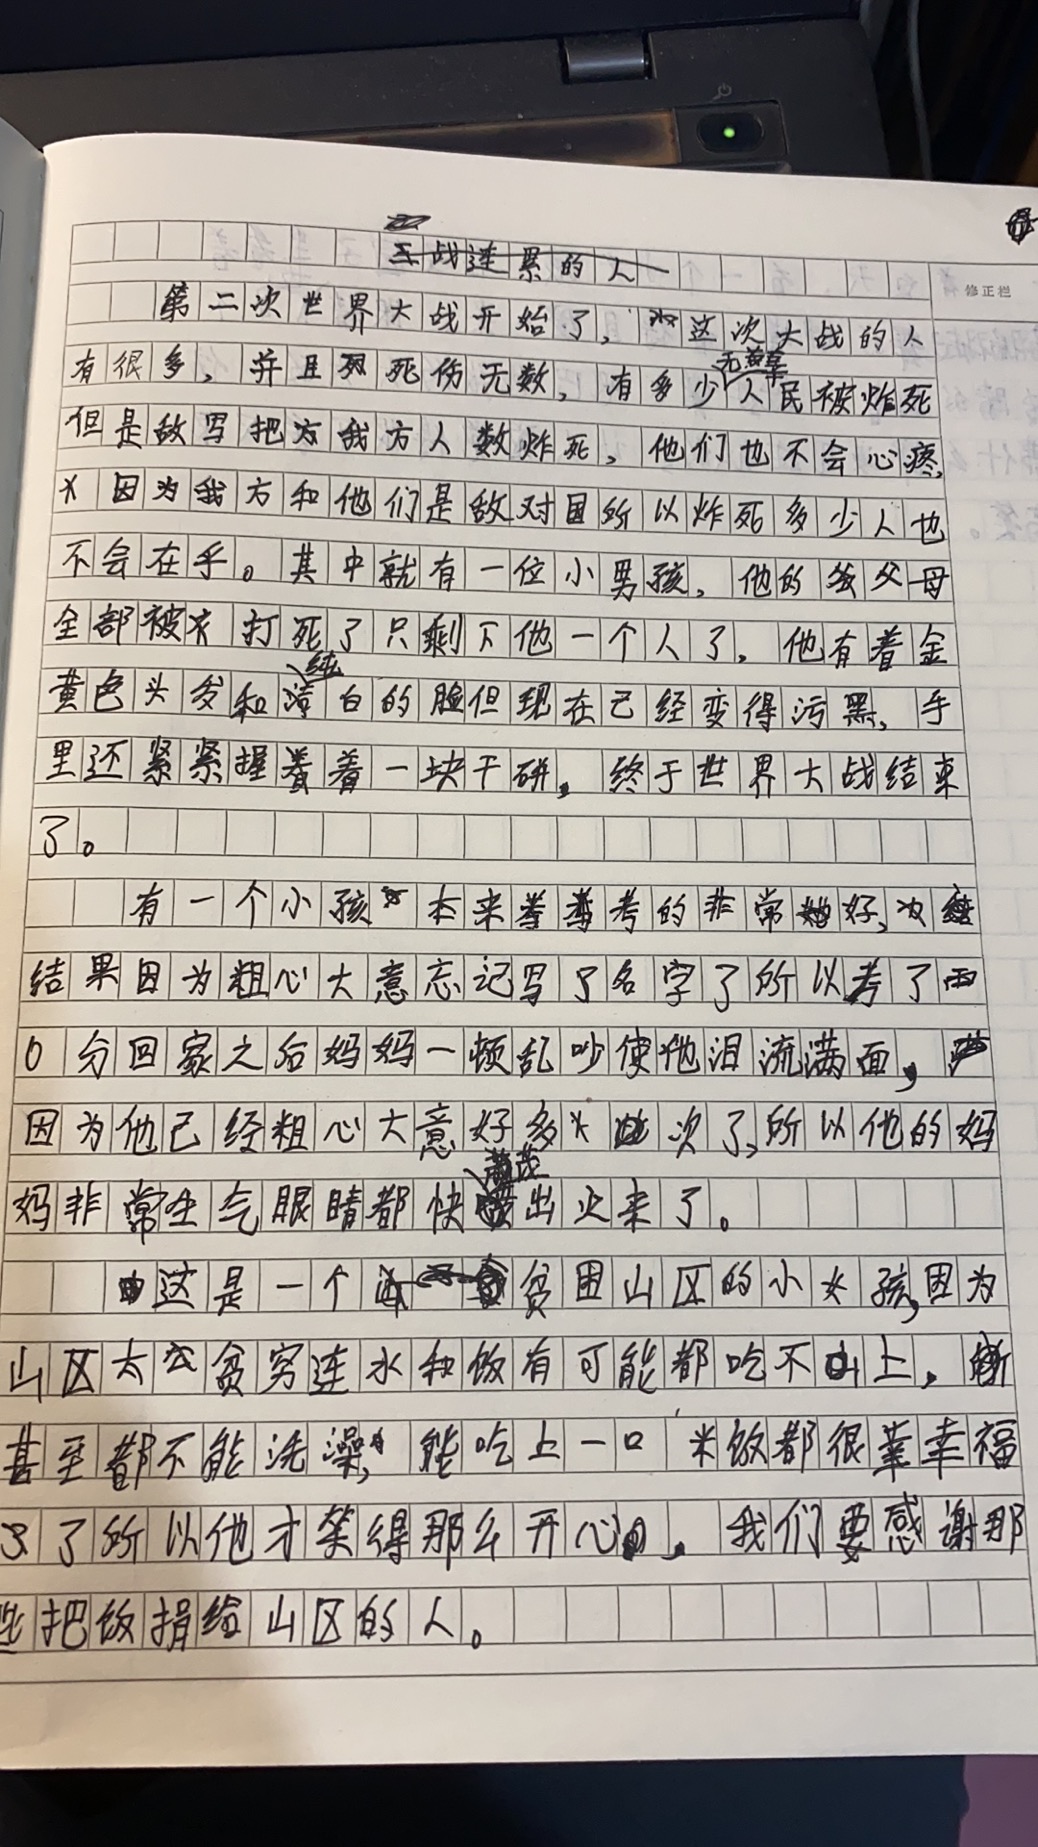 二战连累的人
修正栏
第二次世界大战开始了，这次大战的人
有很多，并且死伤无数，有多少无辜人民被炸死
但是敌写把方我方人数炸死，他们也不会心疼，
因为我方和他们是敌对国所以炸死多少人也
不会在乎。其中就有一位小男孩，他的父母
全部被打死了只剩下他一个人了，他有着金
黄色头发和纯白的脸但现在己经变得污黑，手
里还紧紧握着一块干饼。终于世界大战结束
了。
有一个小孩本来考的非常好，
结果因为粗心大意忘记写了名字了所以考了
0分回家之后妈妈一顿乱吵使他泪流满面，
因为他已经粗心大意好多次了，所以他的妈
妈非常生气眼睛都快出火来了。
这是一个贫困山区的小女孩，因为
山区太贫穷连水和饭有可能都吃不上，
甚至都不能洗澡，能吃上一口米饭都很幸福
了所以他才笑得那么开心。我们要感谢那
些把饭捐给山区的人。